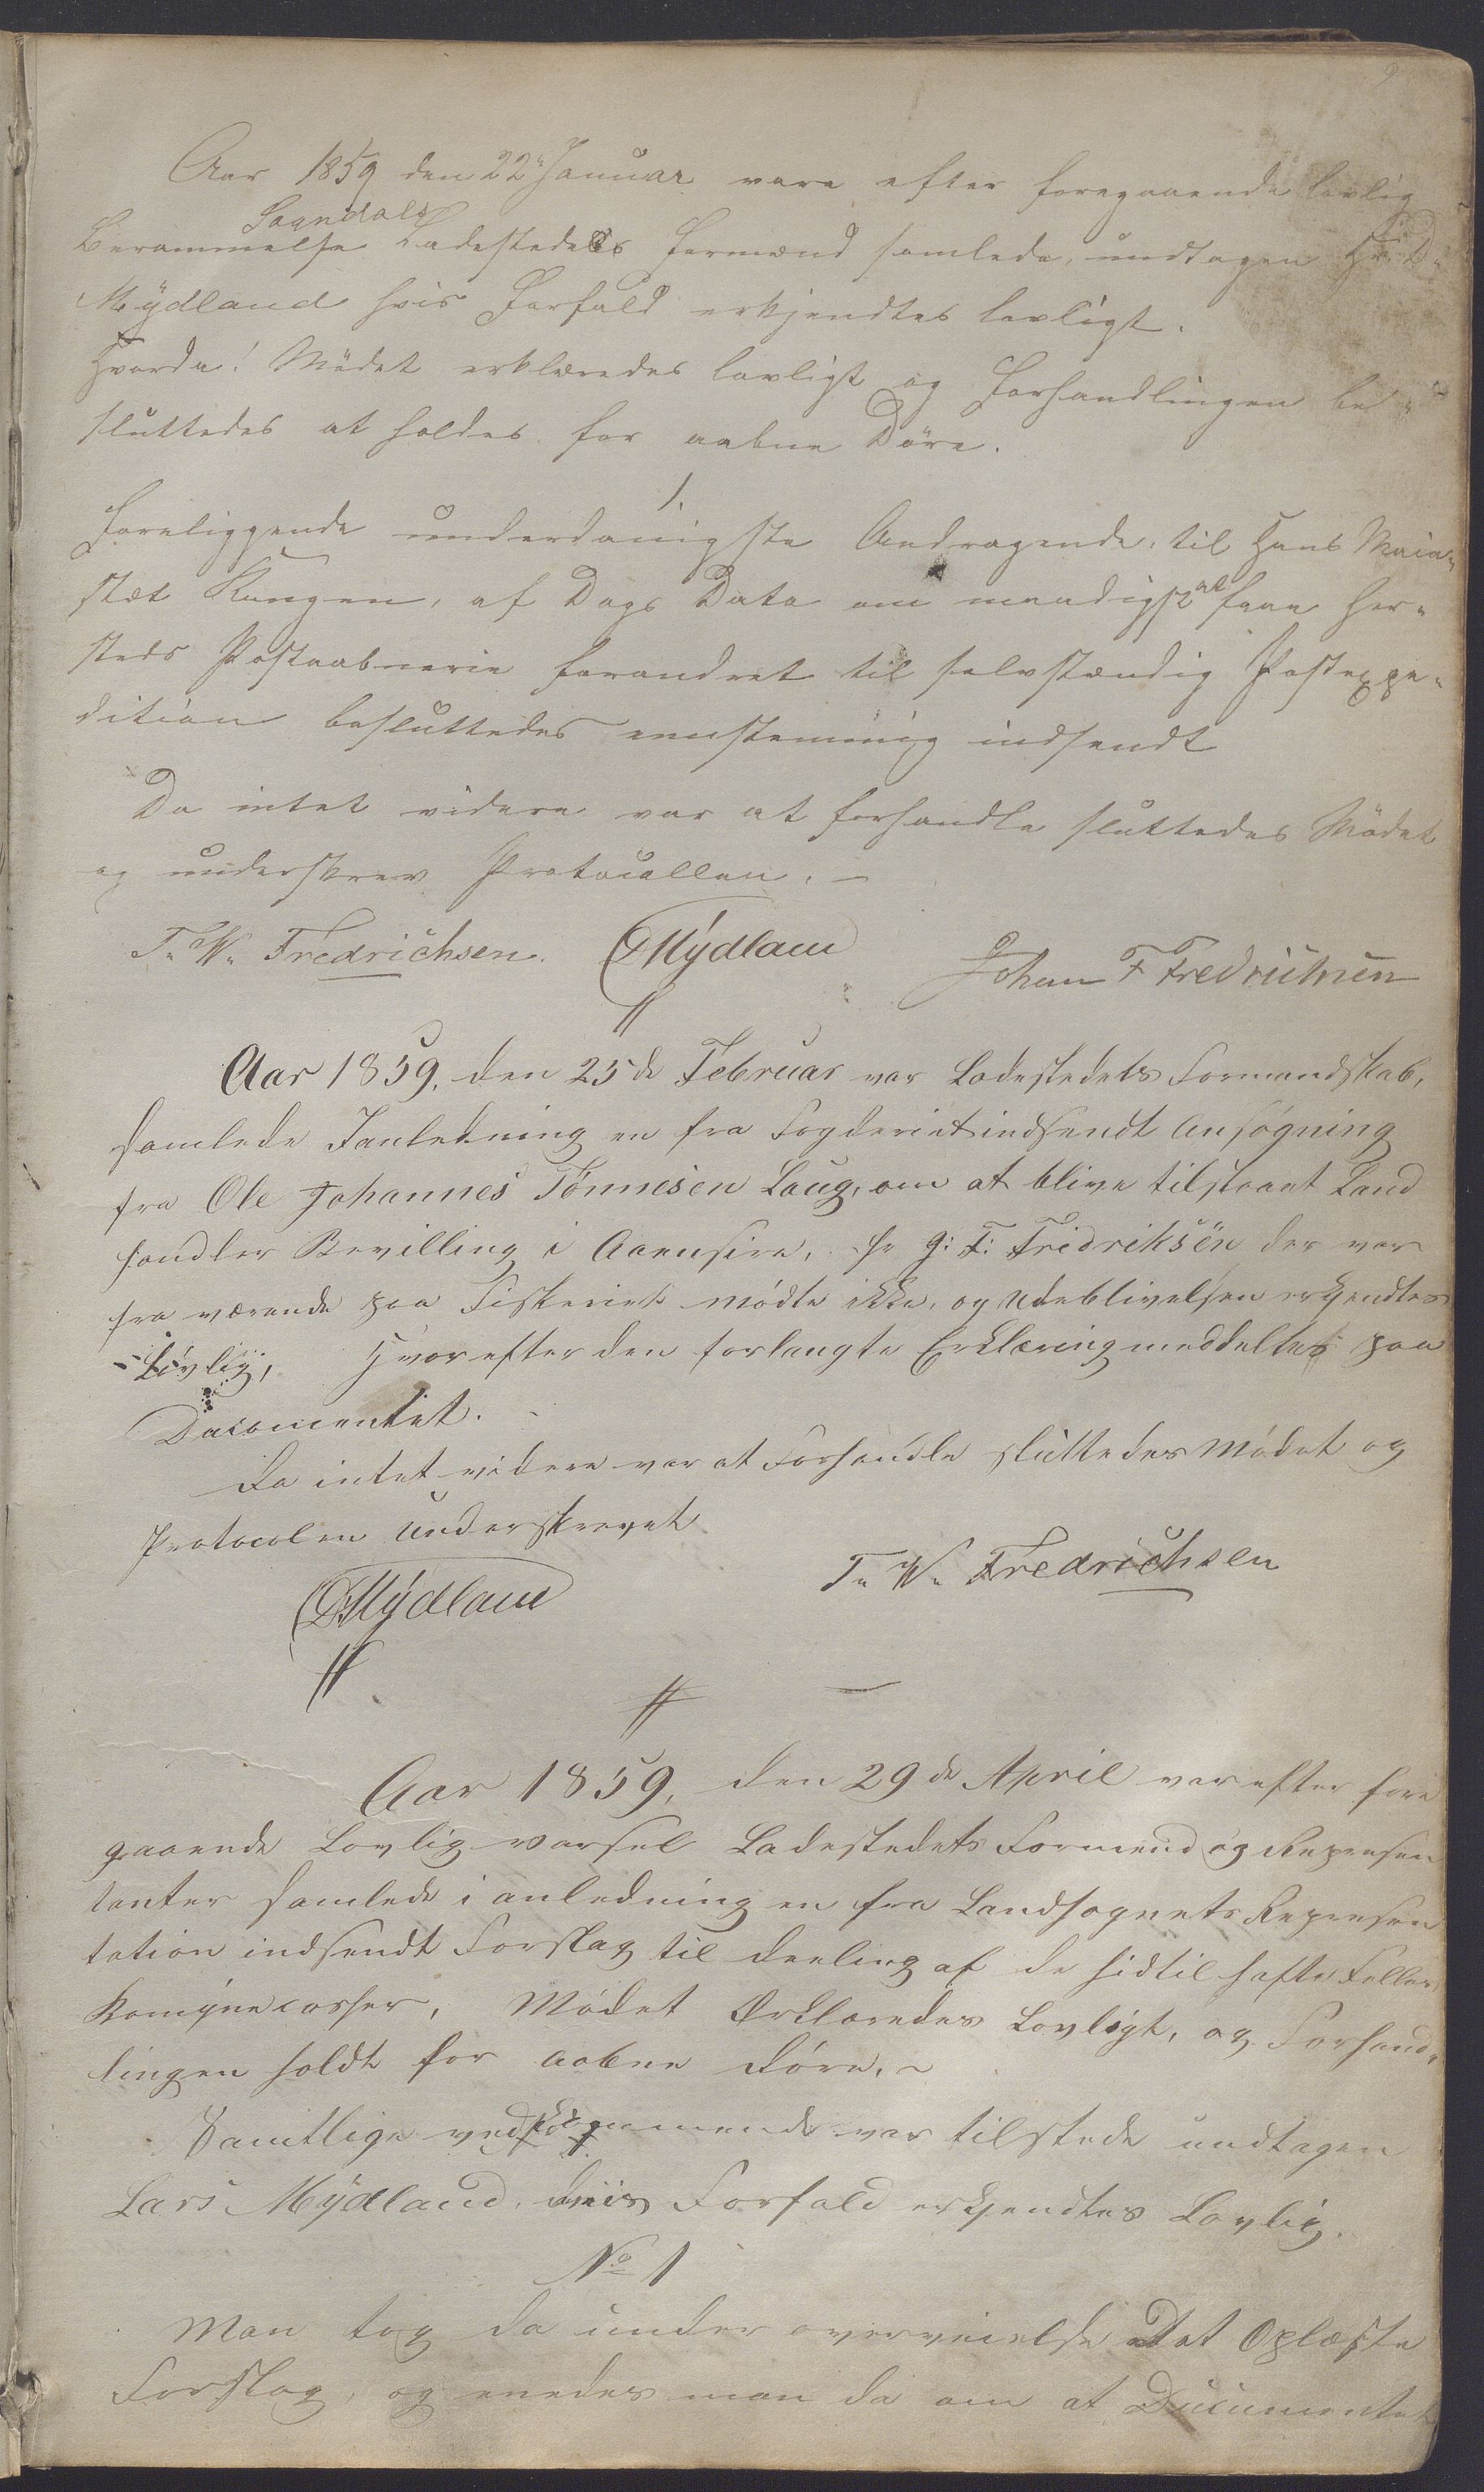 9
Aar 1859 den 22de Januar vare efter foregaaende lovlig
Sogndals
Berammelse Ladestedets Formænd samlede, undtagen Hr. D.
Mydland hvis Forfald erkjendtes lovligt.
Hvorda! Mödet erklæredes lovligt og Forhandlingen be-
sluttedes at holdes for aabne Döre.
1.
Foreliggende underdanigste Andragende til Hans Maie-
stæt Kongen, af Dags Dato om naadigst at faae her-
steds Postaabnerie forandret til selvstændig Postexpe-
dition besluttedes eenstemmig indsendt
Da intet videre var at forhandle sluttedes Mödet
og underskrev Protocollen. –
T. W. Fredrichsen. Mydland Johan F Fredrichsen
Aar 1859, den 25de Februar var Ladestedets Formandskab,
samlede Ianledning en fra Fogderiet indsendt Ansøgning
fra Ole Johannes Tönnesen Laug, om at blive tilstaaet Land
handler Bevilling i Aaensire, Hr J: F: Fridriksen der var
fra værende paa Fiskeriet mødte ikke, og Udeblivelsen erkjendtes
Lovlig, Hvorefter den forlangte Erklæring meddeltes paa
Documentet.
Da intet videre var at Forhandle sluttedes Mødet og
Protocolen Underskrevet
Mydland T. W. Fredrichsen
Aar 1859, den 29de April var efter fore
gaaende Lovlig varsel Ladestedets Formend og Represen
tanter samlede i anledning en fra Landsognets Represen
tation indsendt Forslag til deeling af de hidtil hafte Felles
Komunecasser, Mødet Erklæredes Lovligt, og Forhand-
lingen holdt for aabne Døre, –
Samtlige vedkommende var tilstede undtagen
Lars Mydland, hvis Forfald erkjendtes Lovlig.
No 1
Man tog da under overveielse Det Oplæste
Forslag, og enedes man da om at Documentet